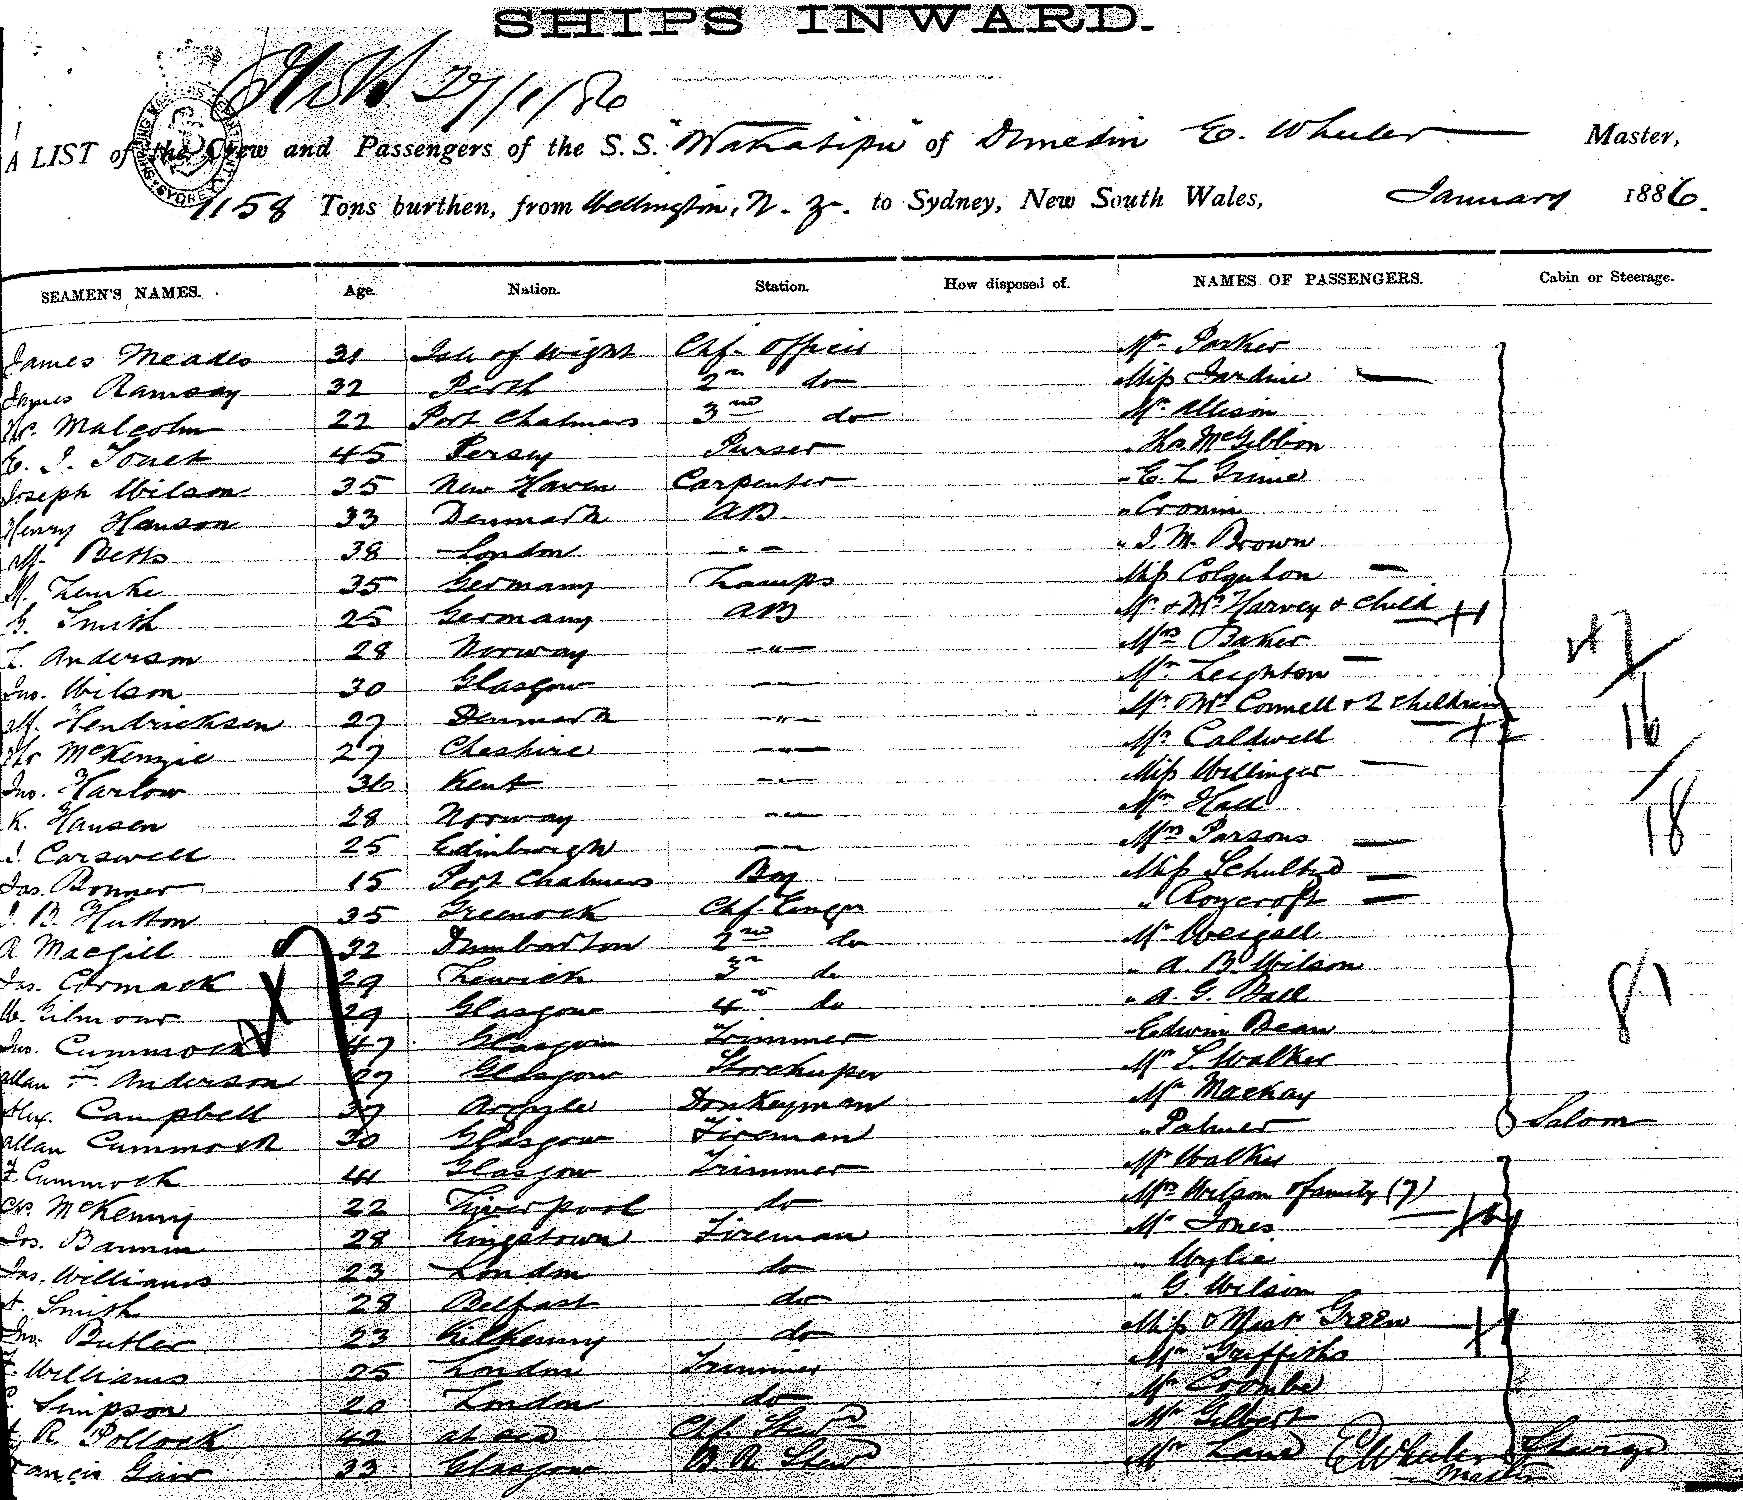 SHIPS INWARD.
27/1/86
A LIST of the Crew and Passengers of the S.S. "Wakatipu" of Dunedin E. Wheeler Master,
1158 Tons burthen, from Wellington, N. Z. to Sydney, New South Wales, January 1886.
SEAMEN'S NAMES. Age. Nation. Station. How disposed of. NAMES OF PASSENGERS. Cabin or Steerage.
James Meades 31 Isle of Wight Chf. Officer Mr Parker
James Ramsay 32 Perth 2nd do Miss Jardine
Malcolm 22 Port Chalmers 3rd do Mr Allison
E. J. 45 Jersey Purser " Thos McGibbon
Joseph Wilson 35 New Haven Carpenter " E L Grime
Henry Hanson 33 Denmark AB " Cronin
Alf. Betts 38 London " " J. M. Brown
35 Germany Lamps Miss Colquhon
Smith 25 Germany AB Mr & Mrs Harvey & Child +1
Anderson 28 Norway " Mrs Baker
Jno. Wilson 30 Glasgow " Mr Leighton
Alf. Hendricksen 27 Denmark " Mr & Mrs Connell & 2 children
McKenzie 27 Cheshire " Mr Caldwell +2
Jno. Harlow 36 Kent " Miss Willinger
K. Hansen 28 Norway " Mr Hall
J. Carswell 25 Edinburgh " Mrs Parsons
Jas. Bonner 15 Port Chalmers Boy Miss
J. B. Hutton 35 Greenock Chf. Engr " Roycroft
A Macgill 32 Dumbarton 2nd do Mr Weigall
Jas. Cormack 29 Lerwick 3rd do " A. B. Wilson
W. Gilmour 29 Glasgow 4th do " A. G. Ball
Jno. Cummock 47 Glasgow Trimmer Edwin Bean
Allan Anderson 27 Glasgow Storekeeper Mr S. Walker
Alex. Campbell 37 Argyle Donkeyman Mr Mackay
Allan Cummock 30 Glasgow Fireman " Palmer Saloon
Cummock 41 Glasgow Trimmer Mr Walker
McKenny 22 Liverpool do Mrs Wilson & family (7)
Jos. Bannin 28 Kingstown Fireman Mr Jones
Jas. Williams 23 London do " Wylie
Smith 28 Belfast do " G. Wilson
Jno. Butler 23 Kilkenny do Miss & Mast. Green +1
Williams 25 London Trimmer Mr Griffiths
Simpson 20 London do Mr Coombe
R Pollock 42 at sea Chf. Stewd Mr Gilbert
Francis Gair 33 Glasgow B. R. Stewd Mr Lane E Wheeler Steerage
Master
47
16
18
81